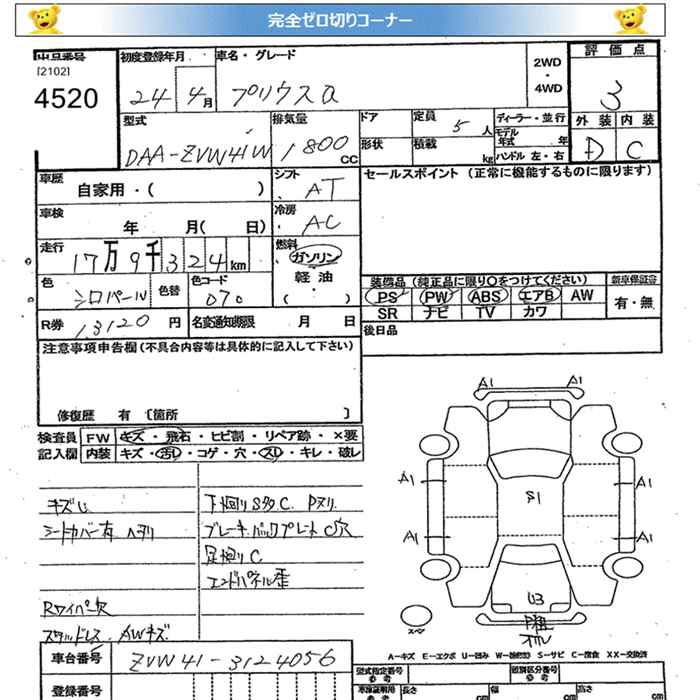 完全ゼロ切りコーナー
出品番号
[2102]
4520
初度登録年月
24 4月
車名・グレード
プリウスα
2WD
・
4WD
評価点
3
外装 内装
D C
型式
DAA-ZVW41W
排気量
1800
CC
ドア
形状
定員
5人
積載
kg
ディーラー・並行
モデル
年式 年
ハンドル 左・右
車歴
自家用・( )
シフト
AT
セールスポイント (正常に機能するものに限ります)
車検
年 月( 日)
冷房
AC
走行
17万9千324km
燃料
ガソリン
軽油
・( )
色
シロパール
色替
色コード
070
装備品 (純正品に限り○をつけてください)
新車保証書
PS PW ABS エアB AW
SR ナビ TV カワ
有・無
R券
13120 円
名変通知期限 月 日
後日品
注意事項申告欄 (不具合内容等は具体的に記入して下さい)
修復歴 有 〔箇所 〕
検査員
記入欄
FW キズ・飛石・ヒビ割・リペア跡・×要
内装 キズ・汚レ・コゲ・穴・スレ・キレ・破レ
シートカバー有
Rワイパー欠
スタッドレス AWキズ
下廻りSタクC Pヌリ
ブレーキバックプレートC穴
足廻りC
エンドパネル歪
A1 A1
A1 A1
A1 A1
S1
U3
スペア
A-キズ E-エクボ U-凹み W-補修跡 S-サビ C-腐食 XX-交換済
車台番号
ZVW41-3124056
登録番号
型式指定番号
参考
類別区分番号
参考
長さ cm
幅 cm
高さ cm